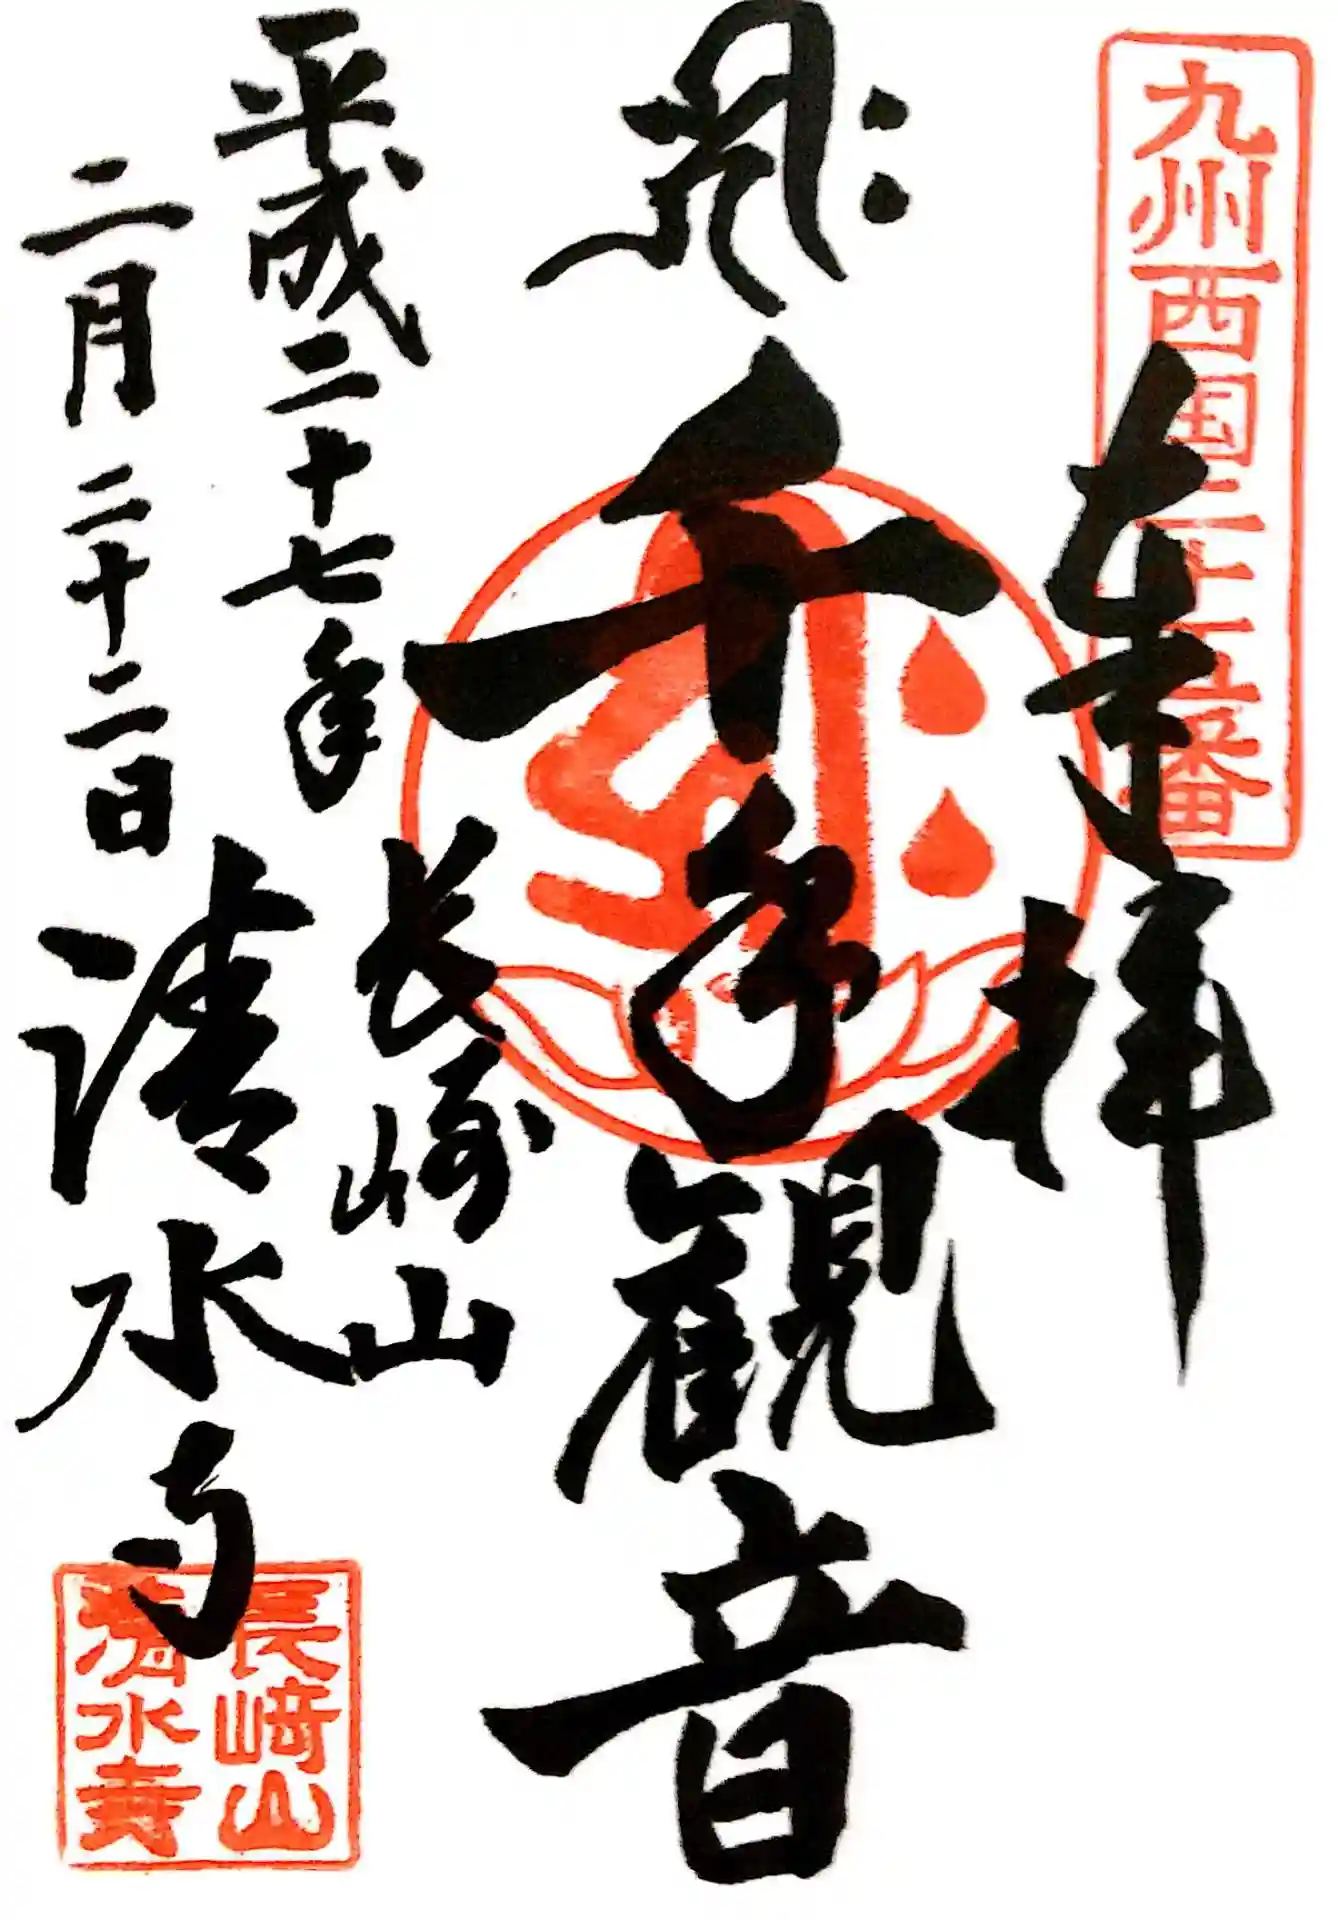 九州西国二十五番
奉拝
𑖮𑖿𑖨𑖱𑖾
千手観音
平成二十七年
二月二十二日
長崎山
清水寺
長﨑山
清水寺